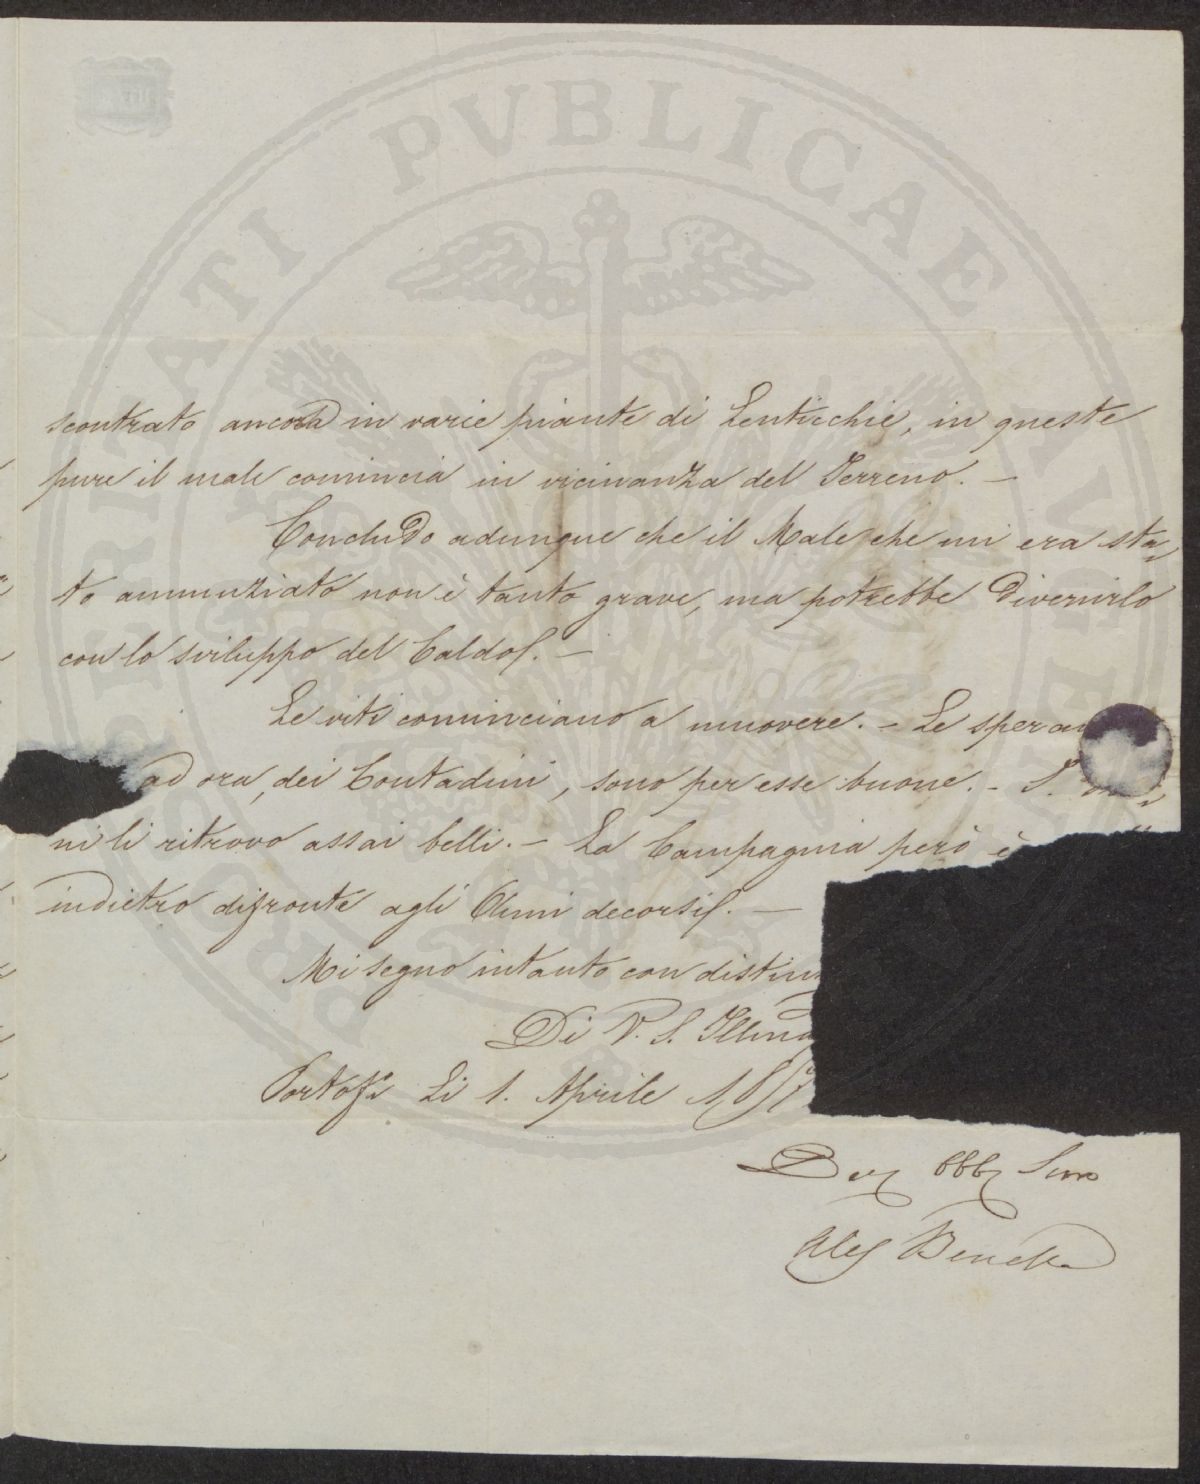 PROSPERITATI PVBLICAE AVGENDAE
scontrato ancora in varie piante di Lenticchie, in queste
pure il male comincia in vicinanza del Terreno. —
Concludo adunque che il Male che mi era sta-
to annunziato non è tanto grave, ma potrebbe divenirlo
con lo sviluppo del Caldo. —
Le viti cominciano a muovere. – Le speran
ad ora, dei Contadini, sono per esse buone. –
ni li ritrovo assai belli. – La Campagnia però è
indietro difronte agli Anni decorsi. —
Mi segno intanto con distin
Di V. S. Illma
Li 1. Aprile 185
Dev Obb Servo
Ales